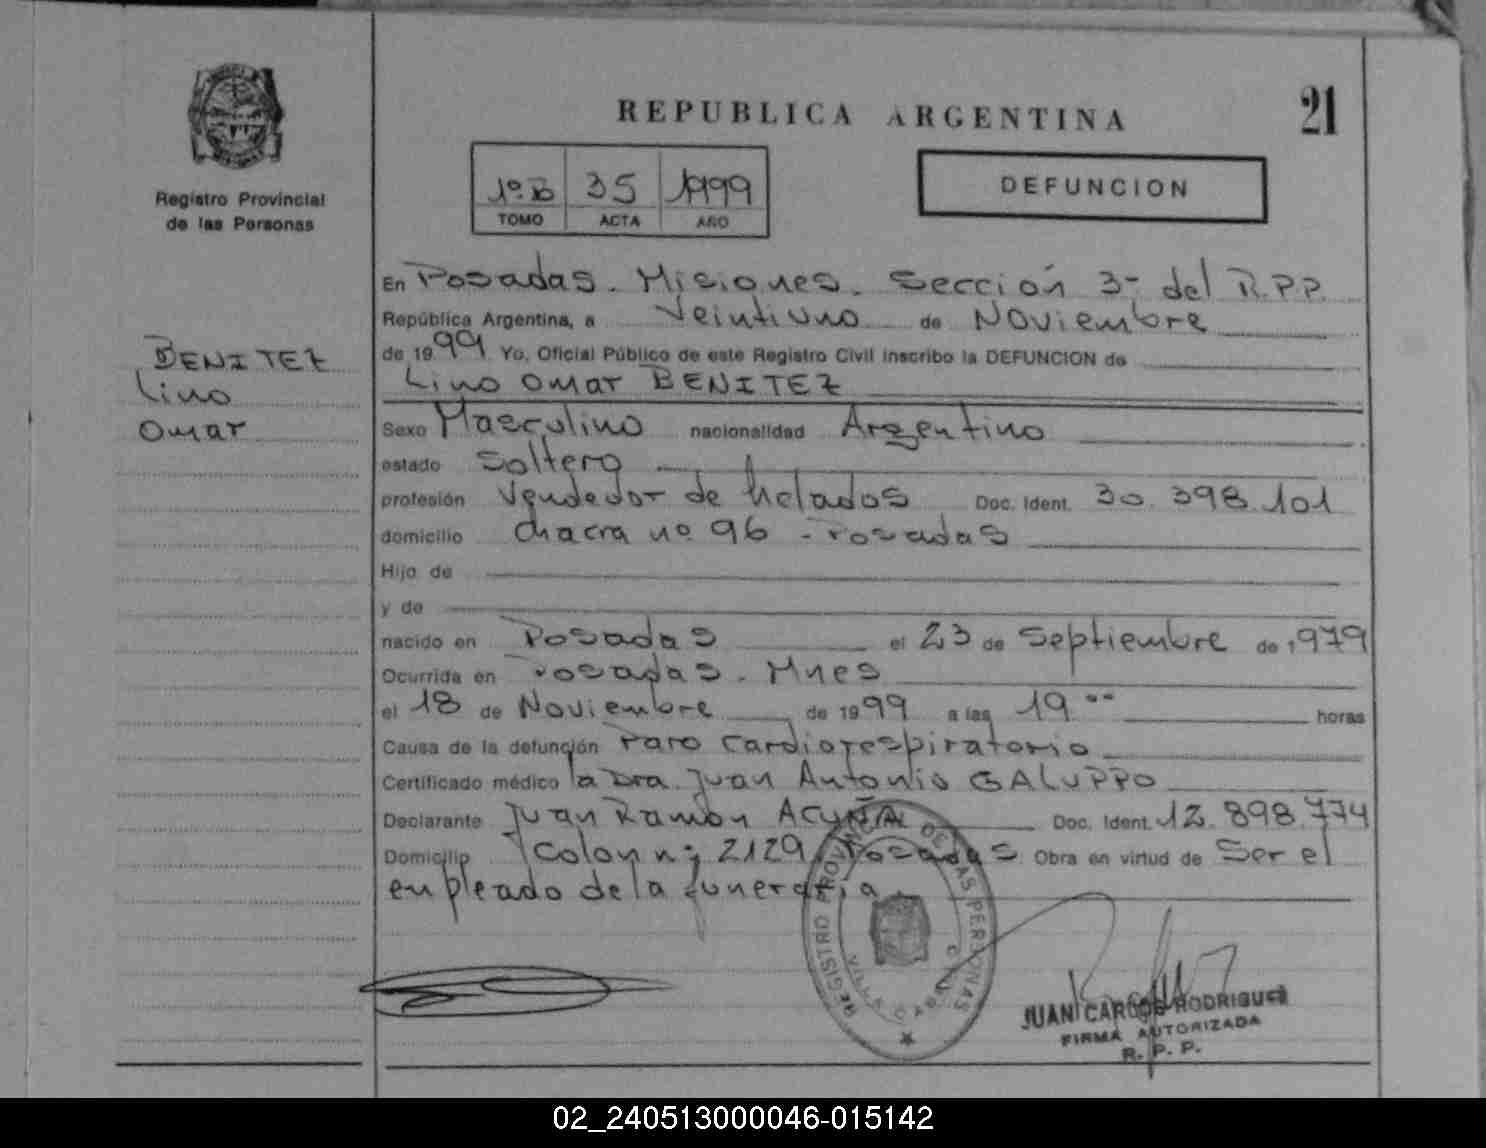 REPUBLICA ARGENTINA
21
Registro Provincial
de las Personas
1º.B 35 1999
TOMO ACTA AÑO
DEFUNCION
En Posadas. Misiones. Sección 3ª del R.P.P.
República Argentina, a Veintiuno de Noviembre
de 1999 Yo, Oficial Público de este Registro Civil inscribo la DEFUNCION de
Lino Omar BENITEZ
BENITEZ
Lino
Omar
Sexo Masculino nacionalidad Argentino
estado Soltero
profesión Vendedor de helados Doc. Ident. 30.398.101
domicilio Chacra nº 96 - Posadas
Hijo de
y de
nacido en Posadas el 23 de Septiembre de 1979
Ocurrida en Posadas. Mnes
el 18 de Noviembre de 1999 a las 19 horas
Causa de la defunción Paro Cardiorespiratorio
Certificado médico la Dra. Juan Antonio GALUPPO
Declarante Juan Ramón ACUÑA Doc. Ident. 12.898.774
Domicilio Colon nº 2129 Posadas Obra en virtud de Ser el
empleado de la funeraria
REGISTRO PROVINCIAL DE LAS PERSONAS
VILLA CABELLO
JUAN CARLOS RODRIGUEZ
FIRMA AUTORIZADA
R. P. P.
02_240513000046-015142